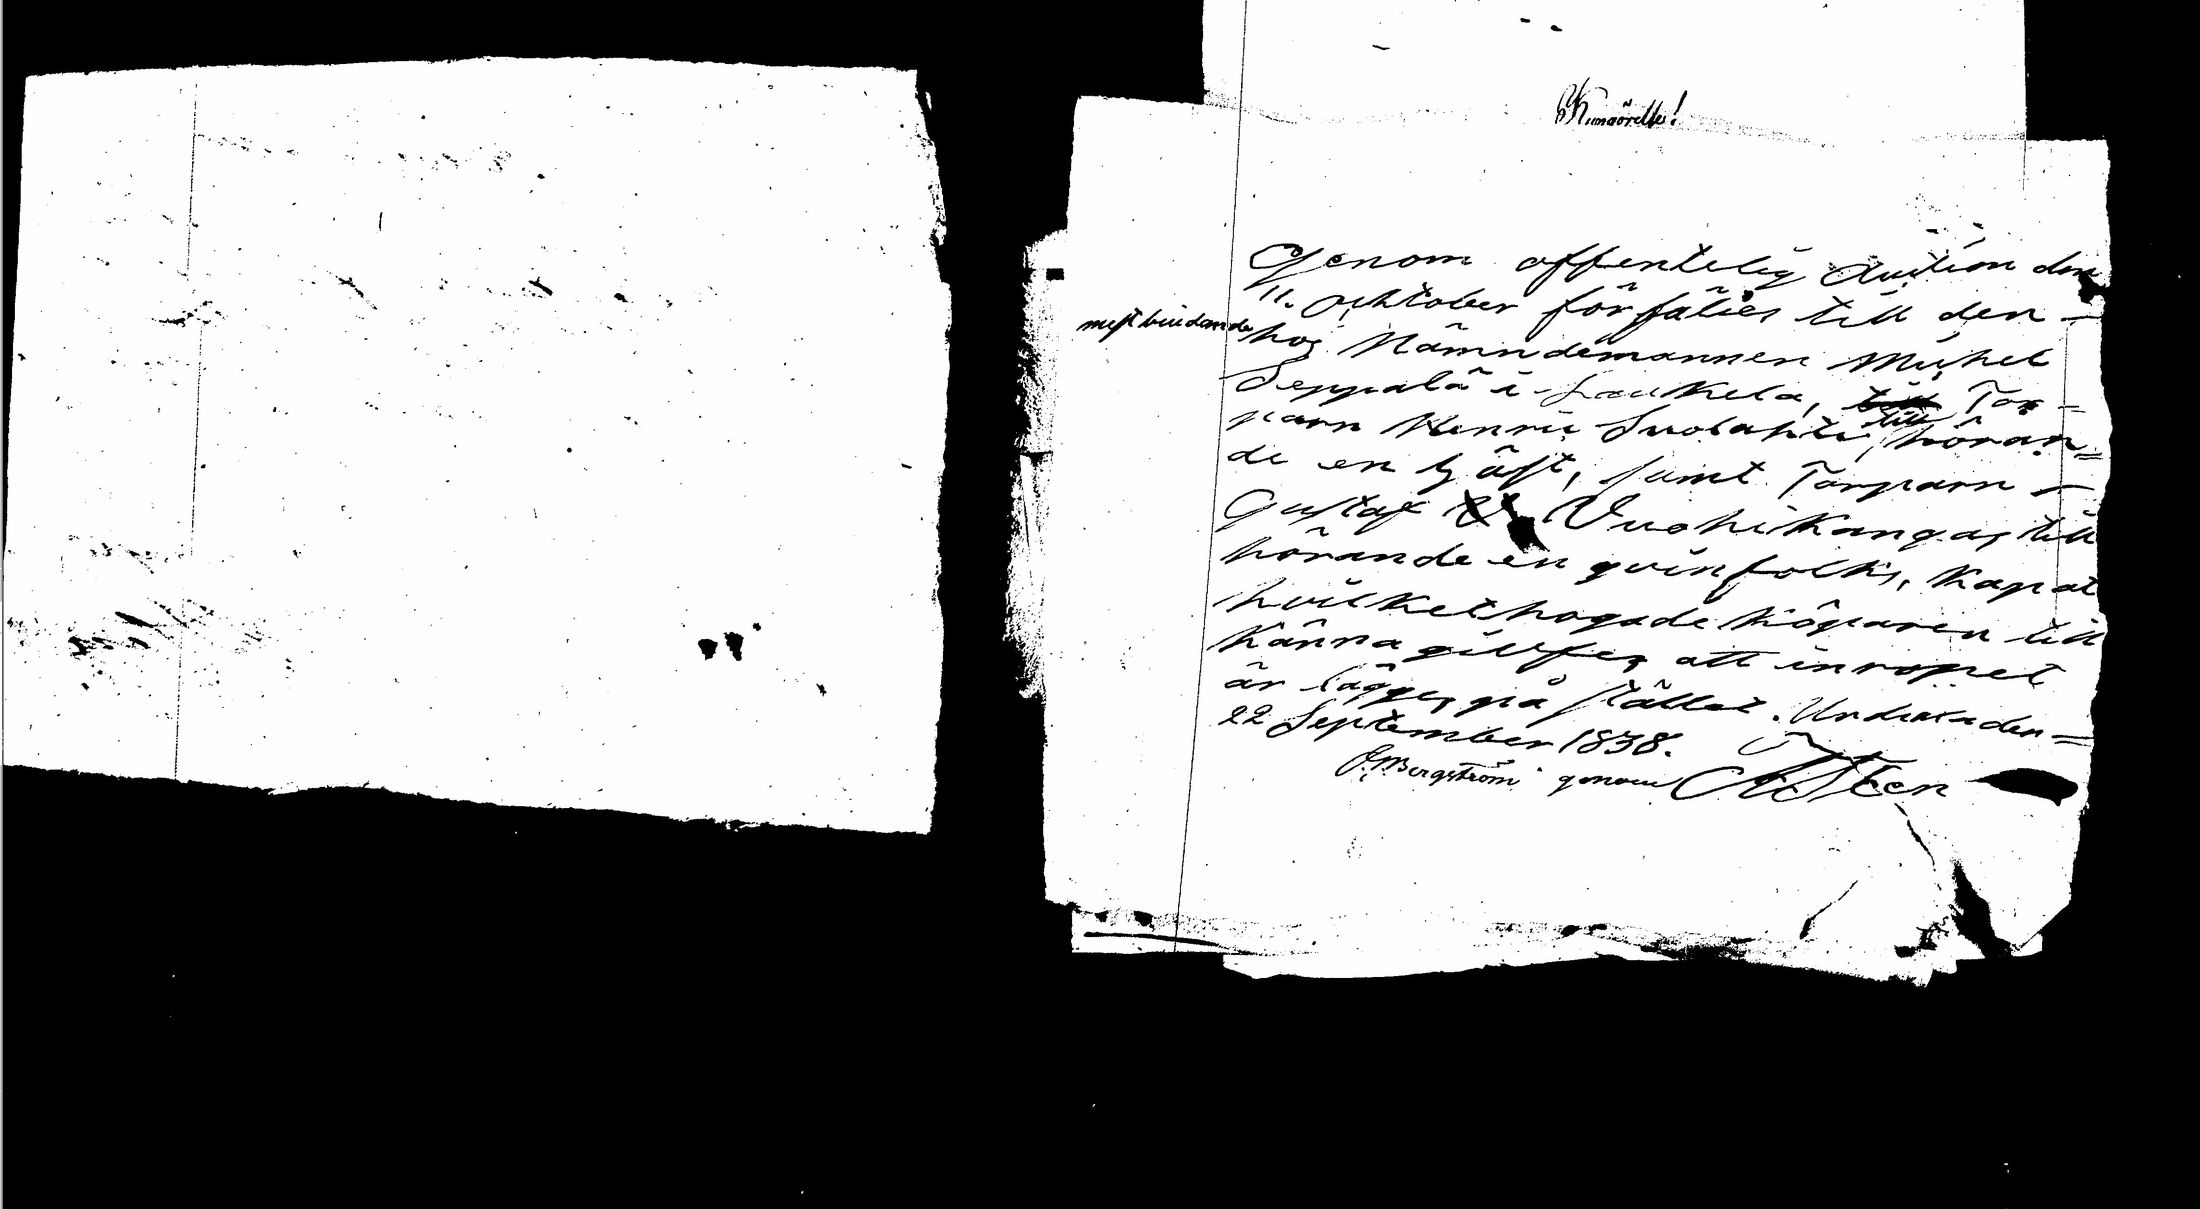 Kungörelse!
Genom offentelig Auction den
11. ochtober försäljes till den
mestbiudande hos Nämndemannen Michel
Seppalä i Laukela, till Tor=
parn Henric Suolahti till höran=
de en häst, samt Torparn
Gustaf V Vuohikangas till
hörande en qvinfolks, Kapat
hvilket hogade Köparen till
Känna gilfes att inropet
är lägges på stället. Urdiala den=
22 September 1838.
J. Bergström genom A Sten